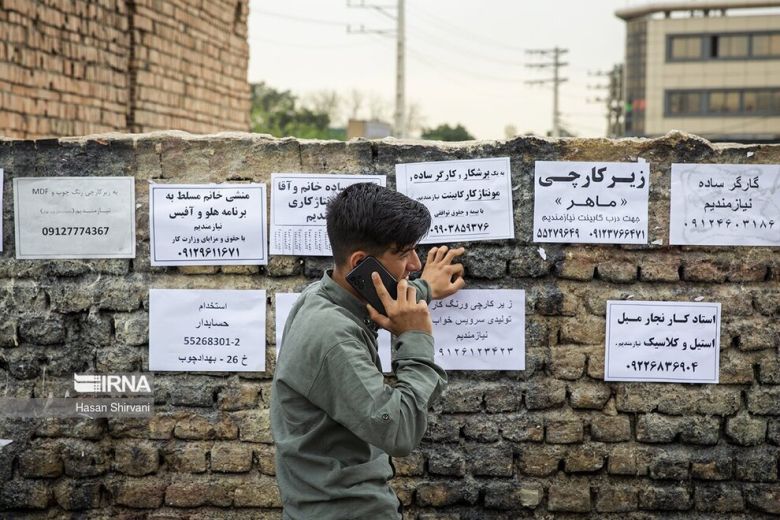 به زیرکارچی رنگ چوب و MDF
نیازمندیم
09127774367
منشی خانم مسلط به
برنامه هلو و آفیس
نیازمندیم
با حقوق و مزایای وزارت کار
۰۹۱۲۹۶۱۱۶۷۱
ساده خانم و آقا
مونتاژکاری
نیازمندیم
به یک پرسکار و کارگر ساده
مونتاژکار کابینت نیازمندیم
با بیمه و حقوق توافقی
۰۹۹۰۳۸۵۹۳۷۶
زیرکارچی
«ماهر»
جهت درب کابینت نیازمندیم
۵۵۲۷۷۶۴۹ ۰۹۱۲۳۷۶۶۴۷۱
کارگر ساده
نیازمندیم
۰۹۱۲۴۶۰۳۱۸۶
استخدام
حسابدار
55268301-2
خ 26 - بهدادچوب
زیر کارچی و رنگ کار
تولیدی سرویس خواب
نیازمندیم
۹۱۲۶۱۲۳۴۲۳
استاد کار نجار مبل
استیل و کلاسیک نیازمندیم.
۰۹۲۲۶۸۳۶۹۰۴
IRNA
Hasan Shirvani